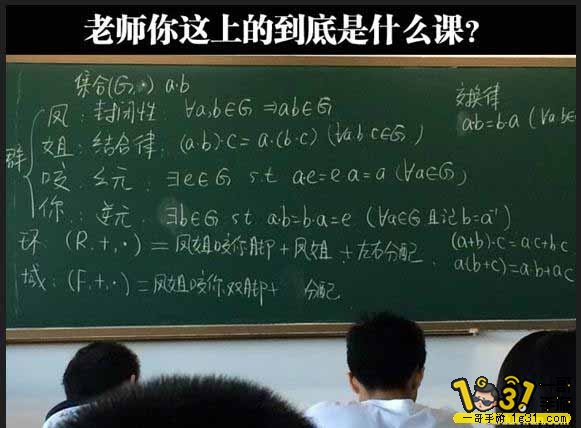 老师你这上的到底是什么课?
集合(G,·) a·b
交换律
群
凤:封闭性 ∀a,b∈G ⇒ab∈G
a·b=b·a (∀a,b∈
姐:结合律:(a·b)·c=a·(b·c) (∀a b c∈G)
咬 幺元: ∃e∈G s.t a·e=e·a=a (∀a∈G)
你:逆元: ∃b∈G s.t a·b=b·a=e (∀a∈G 且记b=a⁻¹)
环 (R,+,·)=凤姐咬你脚+凤姐+左右分配.
(a+b)·c=ac+b·c
a(b+c)=a·b+ac
域:(F,+,·)=凤姐咬你双脚+ 分配
1G31
一哥手游 1g31.com